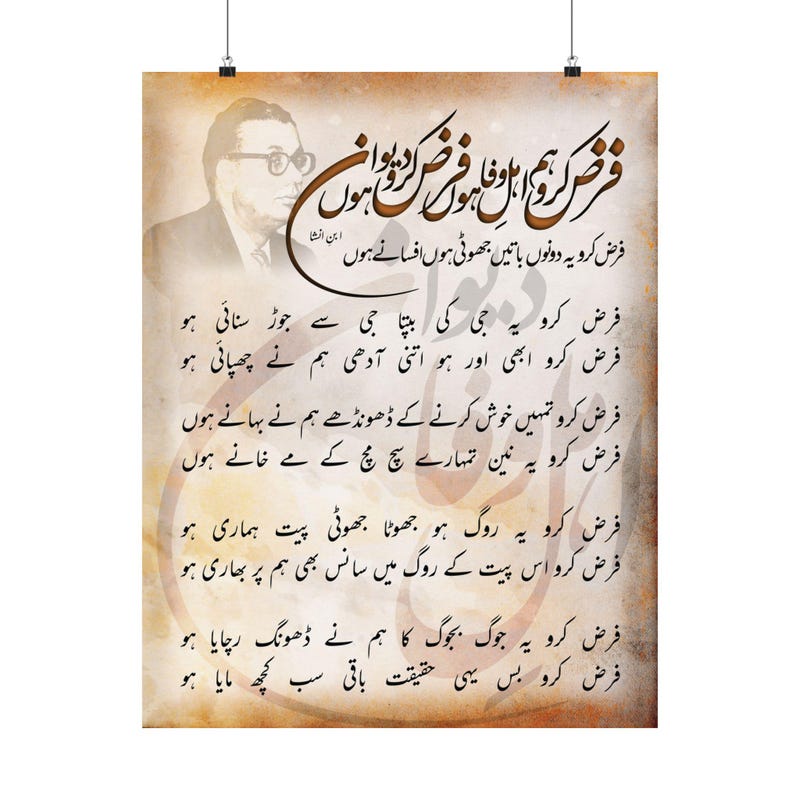 فرض کرو ہم اہلِ وفا ہوں فرض کرو دیوانے ہوں
فرض کرو یہ دونوں باتیں جھوٹی ہوں افسانے ہوں
ابنِ انشا
فرض کرو یہ جی کی بپتا جی سے جوڑ سنائی ہو
فرض کرو ابھی اور ہو اتنی آدھی ہم نے چھپائی ہو
فرض کرو تمہیں خوش کرنے کے ڈھونڈھے ہم نے بہانے ہوں
فرض کرو یہ نین تمہارے سچ مچ کے مے خانے ہوں
فرض کرو یہ روگ ہو جھوٹا جھوٹی پیت ہماری ہو
فرض کرو اس پیت کے روگ میں سانس بھی ہم پر بھاری ہو
فرض کرو یہ جوگ بجوگ کا ہم نے ڈھونگ رچایا ہو
فرض کرو بس یہی حقیقت باقی سب کچھ مایا ہو